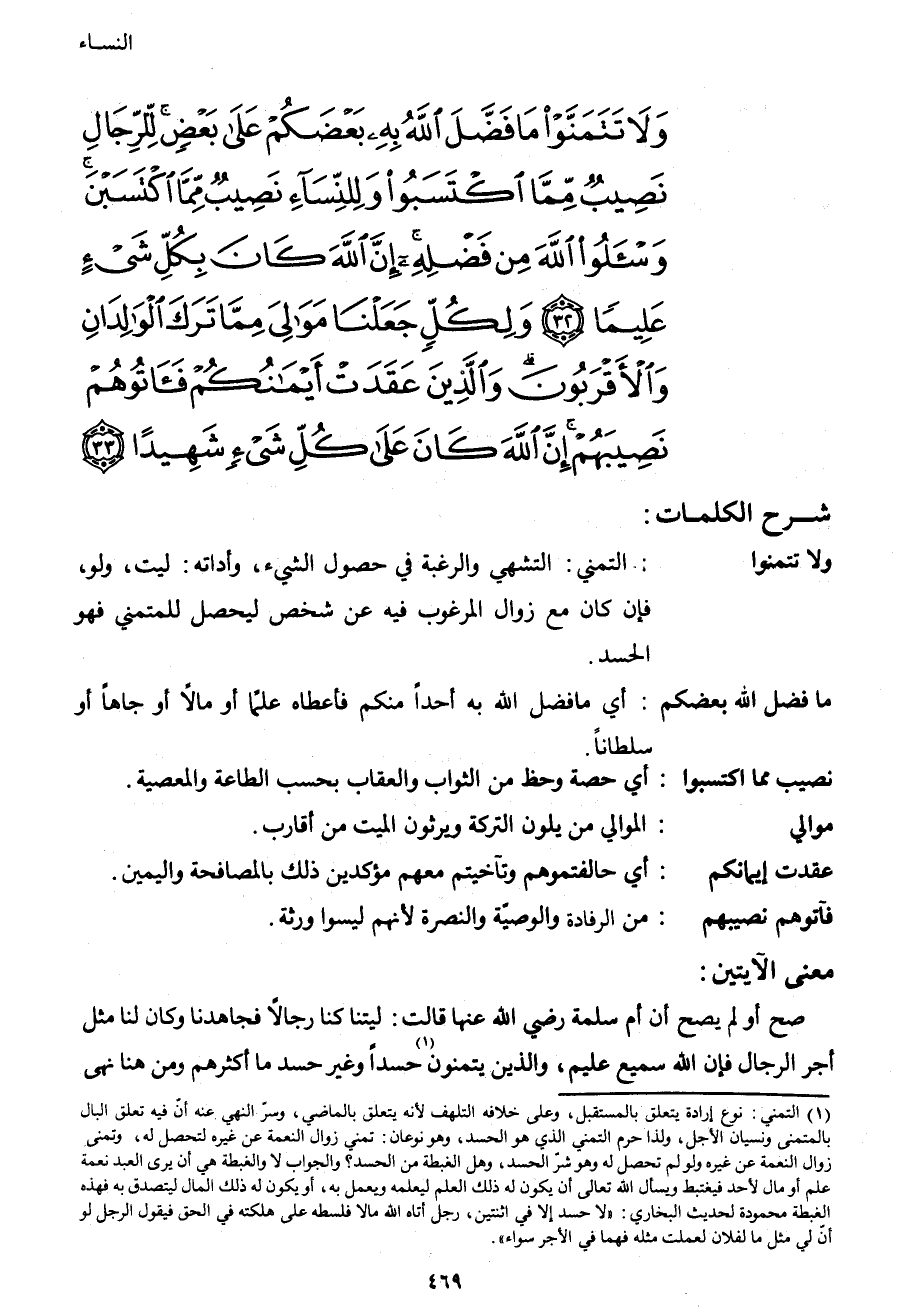 النساء
وَلَا تَتَمَنَّوْا۟ مَا فَضَّلَ ٱللَّهُ بِهِۦ بَعْضَكُمْ عَلَىٰ بَعْضٍ ۚ لِّلرِّجَالِ
نَصِيبٌ مِّمَّا ٱكْتَسَبُوا۟ وَلِلنِّسَآءِ نَصِيبٌ مِّمَّا ٱكْتَسَبْنَ ۚ
وَسْـَٔلُوا۟ ٱللَّهَ مِن فَضْلِهِۦٓ ۚ إِنَّ ٱللَّهَ كَانَ بِكُلِّ شَىْءٍ
عَلِيمًا ٣٢ وَلِكُلٍّ جَعَلْنَا مَوَٰلِىَ مِمَّا تَرَكَ ٱلْوَٰلِدَانِ
وَٱلْأَقْرَبُونَ ۚ وَٱلَّذِينَ عَقَدَتْ أَيْمَـٰنُكُمْ فَـَٔاتُوهُمْ
نَصِيبَهُمْ ۚ إِنَّ ٱللَّهَ كَانَ عَلَىٰ كُلِّ شَىْءٍ شَهِيدًا ٣٣
شـرح الكلمـات :
ولا تتمنوا : التمني : التشهي والرغبة في حصول الشيء، وأداته : ليت، ولو،
فإن كان مع زوال المرغوب فيه عن شخص ليحصل للمتمني فهو
الحسد .
ما فضل الله بعضكم : أي مافضل الله به أحداً منكم فأعطاه علمًا أو مالًا أو جاهاً أو
سلطاناً .
نصيب مما اكتسبوا : أي حصة وحظ من الثواب والعقاب بحسب الطاعة والمعصية .
موالي : الموالي من يلون التركة ويرثون الميت من أقارب .
عقدت إيمانكم : أي حالفتموهم وتآخيتم معهم مؤكدين ذلك بالمصافحة واليمين .
فآتوهم نصيبهم : من الرفادة والوصيّة والنصرة لأنهم ليسوا ورثة .
معنى الآيتين :
صح أو لم يصح أن أم سلمة رضي الله عنها قالت : ليتنا كنا رجالًا فجاهدنا وكان لنا مثل
أجر الرجال فإن الله سميع عليم، والذين يتمنون(١) حسداً وغير حسد ما أكثرهم ومن هنا نهى
(١) التمني : نوع إرادة يتعلق بالمستقبل، وعلى خلافه التلهف لأنه يتعلق بالماضي، وسرّ النهي عنه أنّ فيه تعلق البال
بالمتمنى ونسيان الأجل، ولذا حرم التمني الذي هو الحسد، وهو نوعان : تمني زوال النعمة عن غيره لتحصل له، وتمنى
زوال النعمة عن غيره ولو لم تحصل له وهو شرّ الحسد، وهل الغبطة من الحسد؟ والجواب لا والغبطة هي أن يرى العبد نعمة
علم أو مال لأحد فيغتبط ويسأل الله تعالى أن يكون له ذلك العلم ليعلمه ويعمل به، أو يكون له ذلك المال ليتصدق به فهذه
الغبطة محمودة لحديث البخاري : «لا حسد إلا في اثنتين، رجل أتاه الله مالا فلسطه على هلكته في الحق فيقول الرجل لو
أنّ لي مثل ما لفلان لعملت مثله فهما في الأجر سواء» .
٤٦٩